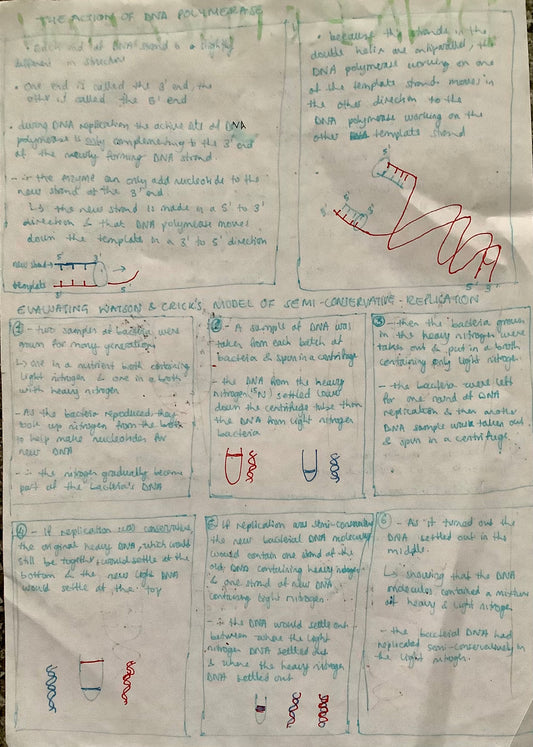 THE ACTION OF DNA POLYMERASE
• Each end of DNA strand is
different in structure
• one end is called the 3' end, the
other is called the 5' end
• during DNA replication the active site of DNA
polymerase is only complementary to the 3' end
of the newly forming DNA strand
- ∴ the enzyme can only add nucleotide to the
new strand at the 3' end
↳ ∴ the new strand is made in a 5' to 3'
direction & that DNA polymerase moves
down the template in a 3' to 5' direction
new strand
template
5' 3'
3' 5'
• because the strands in the
double helix are antiparallel, the
DNA polymerase working on one
of the template strand moves in
the other direction to the
DNA polymerase working on the
other template strand
5'
3' 3'
5' 3'
EVALUATING WATSON & CRICK'S MODEL OF SEMI-CONSERVATIVE-REPLICATION
① - two samples of bacteria were
grown for many generations
↳ one in a nutrient broth containing
light nitrogen & one in a broth
with heavy nitrogen
- As the bacteria reproduced they
took up nitrogen from the broth
to help make nucleotides for
new DNA
- ∴ the nitrogen gradually became
part of the bacteria's DNA
② - A sample of DNA was
taken from each batch of
bacteria & spun in a centrifuge
- the DNA from the heavy
nitrogen (15N) settled lower
down the centrifuge tube than
the DNA from light nitrogen
bacteria
③ - then the bacteria grown
in the heavy nitrogen were
taken out & put in a broth
containing only light nitrogen
- the bacteria were left
for one round of DNA
replication & then another
DNA sample was taken out
& spun in a centrifuge
④ - If replication was conservative,
the original heavy DNA, which would
still be together, would settle at the
bottom & the new light DNA
would settle at the top
⑤ If replication was semi-conservative
the new bacterial DNA molecules
would contain one strand of the
old DNA containing heavy nitrogen
& one strand of new DNA
containing light nitrogen
- ∴ the DNA would settle out
between where the light
nitrogen DNA settled out
& where the heavy nitrogen
DNA settled out
⑥ - As it turned out the
DNA settled out in the
middle
↳ showing that the DNA
molecules contained a mixture
of heavy & light nitrogen
- the bacterial DNA had
replicated semi-conservatively in
the light nitrogen